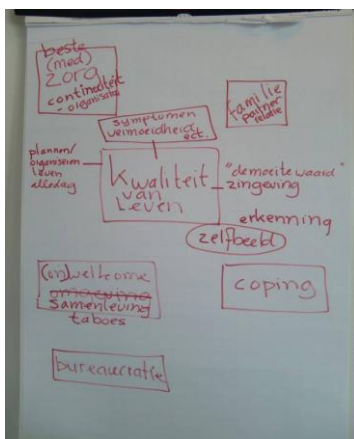 beste
(med)
zorg
continuiteit
- organisatie
familie
partner
relatie
symptomen
vermoeidheid
ect.
plannen/
organiseren
leven
alledag
kwaliteit
van
leven
"de moeite waard"
zingeving
erkenning
zelfbeeld
(on)welkome
omgeving
samenleving
taboes
coping
bureaucratie